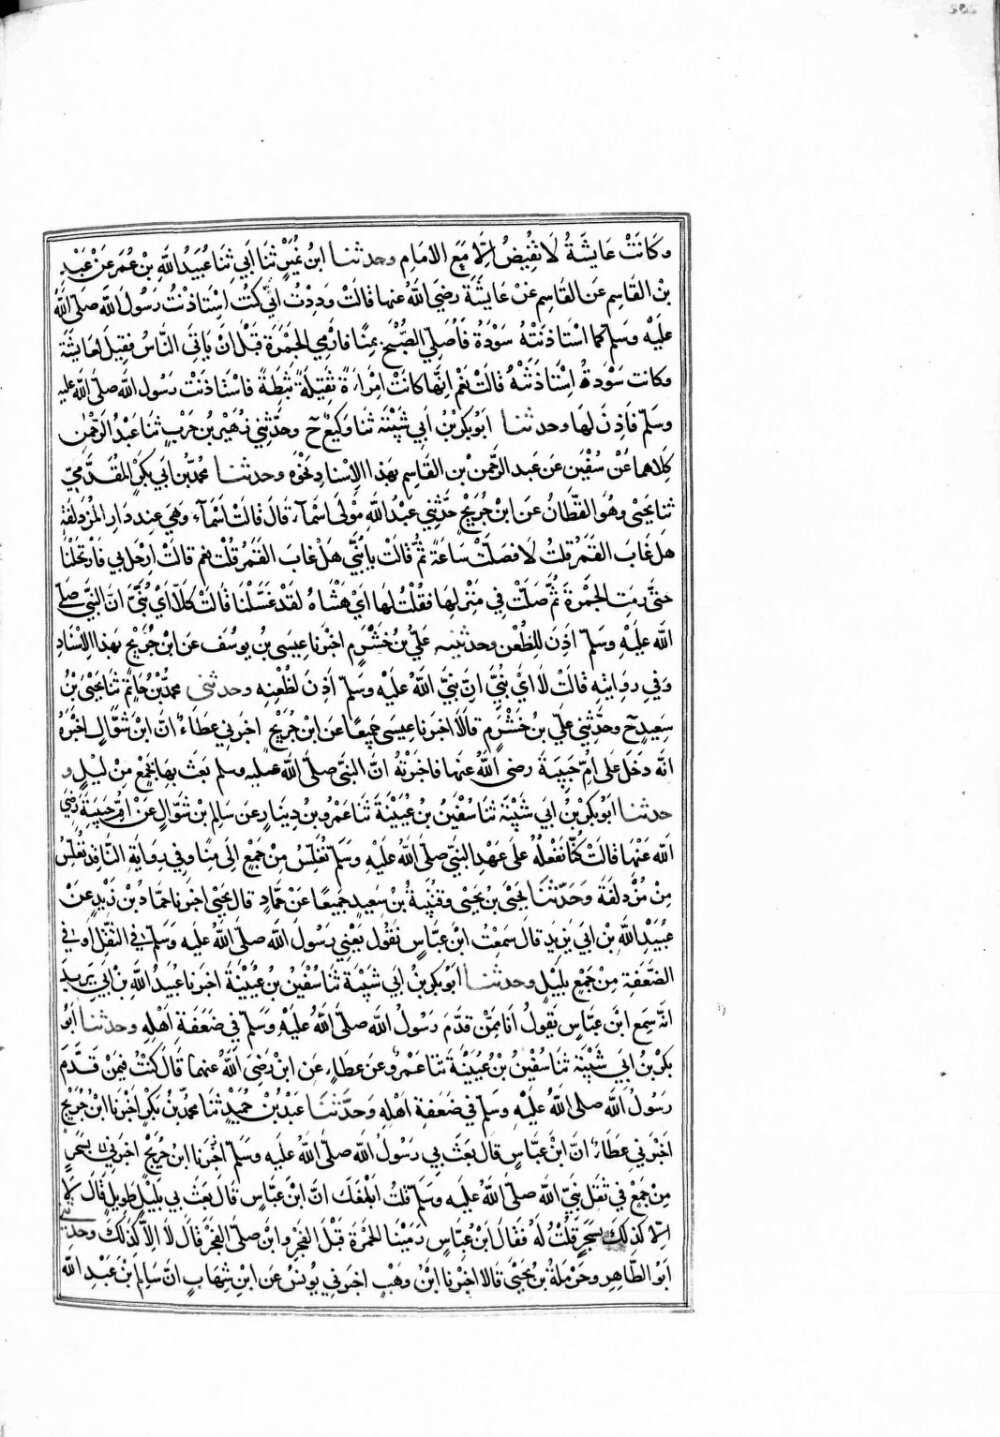 وكانَتْ عايشَةُ لَا تُفِيضُ اِلَّا مَعَ الامَامِ وحدثنا ابنُ نُمَيْرٍ ثَنَا اَبي ثَنَا عُبَيْدُ اللَّهِ بْن عُمَرَ عَنْ عَبْدِ
بْنِ القَاسِمِ عَنِ القَاسِمِ عَنْ عَايشَةَ رضي اللَّهُ عنها قالَتْ وَدِدْتُ اَنّي كُنْتُ اسْتاذنْتُ رَسُولَ اللَّه صَلّى اللَّهُ
عَلَيْهِ وَسَلم كما اسْتَاذَنَتْهُ سَوْدَةُ فَاُصَلِّي الصُّبْحَ بِمِنًا فارْمي الجَمْرَةَ قَبْلَ انْ يَاتيَ النَّاسُ فقِيلَ لعَايشَةَ
وكانت سَوْدَةُ اسْتَاذَنَتْهُ قالَتْ نَعَمْ اِنَّها كانَتْ امْرَاةً ثقِيلَةً ثبِطَةً فاسْتَاذَنَتْ رَسُول اللَّه صَلّى اللَّه عليه
وسَلّم فَاَذِنَ لهَا وحدثنا اَبُو بَكْرِ بْنُ اَبي شَيْبَة ثنَا وَكيعٌ ح وحَدَّثني زُهَيْر بن حَرْبٍ ثنَا عَبْدُ الرَّحْمٰن
كلَاهما عَنْ سُفْيٰنَ عَن عَبد الرَّحمٰنِ بن القَاسِمِ بهَذا الاِسْنادِ نَحْوَه وحدثنا محمَّد بْن اَبي بَكْرٍ المُقَدَّمِيّ
ثنا يَحيَى وهُوَ القطَّانُ عَن ابنِ جُرَيْجٍ حَدَّثني عَبْدُ اللَّهِ مَوْلَى اسْمآء قَالَ قالَتْ اَسْمَآءُ وَهيَ عِندَ دَارِ المُزْدَلفَةِ
هل غابَ القَمَرُ قلتُ لَا فصَلّتْ سَاعَةً ثُمَّ قالَتْ يا بُنَيَّ هَلْ غابَ القَمَرُ قلْتُ نعم قالت ارْحَل بي فارْتحَلْنا
حَتَّى رمَتِ الجمْرَةَ ثُمَّ صَلّتْ في مَنْزلهَا فقُلْتُ لهَا اَيْ هَنْتَاهْ لقدْ غَلَّسْنَا قالَتْ كَلَّا اَيْ بُنَيَّ انَّ النَّبيّ صَلّى
اللَّه عَلَيْهِ وَسَلّمَ اَذِنَ لِلظُّعُنِ وحدثنيه عَليُّ بن خَشْرَمٍ اخبَرنا عِيسَى بن يوسُفَ عَن ابْنِ جُرَيْجٍ بهَذا الاِسْنَادِ
وَفي رِوَايَتِهِ قالَتْ لَا اَيْ بُنَيَّ اِنَّ نَبيَّ اللَّهِ عَلَيْهِ وسَلّم اَذِنَ لظُعُنِهِ وحدثني محمَّد بْنُ حَاتِمٍ ثنَا يَحْيَى بْنُ
سَعيدٍ ح وحَدَّثني عَليُّ بنُ خَشْرَمٍ قالَا اخبَرنا عِيسَى جَمِيعًا عَن ابنِ جُرَيْجٍ اخبرني عَطَاءٌ انَّ ابْنَ شَوَّالٍ اخْبَرَهُ
انَّه دَخَلَ عَلَى امِّ حَبِيبَةَ رضى اللَّهُ عنها فاخبَرَتْهُ انَّ النبيّ صَلّى اللَّه عَليه وسلم بَعَثَ بهَا بجَمْعٍ مِنْ لَيْلٍ و
حدثنا ابُو بَكْرِ بْنُ ابي شَيْبَة ثنَا سُفْيٰنُ بنُ عُيَيْنَةَ ثنَا عَمْرُو بن دِينَارٍ عَن سَالم بن شَوَّالٍ عَنْ امِّ حَبِيبَةَ رَضِيَ
اللَّه عَنْهَا قالَتْ كُنَّا نَفْعَلُهُ عَلَى عَهْدِ النبيّ صَلّى اللَّه عَلَيْهِ وَسَلّم نُغَلِّسُ مِنْ جَمْعٍ اِلَى مِنًا وفي رِوَايَةِ النَّاقِدِ نُغَلِّسُ
مِنْ مُزْدلفَةَ وَحَدّثنَا يَحْيَى بن يَحْيَى وقتيبَةُ بن سَعِيدٍ جَمِيعًا عَنْ حَمَّادٍ قال يَحْيَى اخبَرنا حَمَّادُ بْن زَيْدٍ عَنْ
عُبَيْدِ اللَّهِ بْنِ ابي يَزيدَ قال سَمِعْتُ ابْنَ عَبَّاسٍ يَقُولُ بَعَثَني رَسُولُ اللَّه صَلّى اللَّهُ عَلَيْهِ وَسَلّم في الثَّقَلِ اَوْ في
الضَّعَفةِ مِنْ جَمْعٍ بِلَيْلٍ وحدثنا ابُو بَكْر بنُ ابي شَيْبَة ثنَا سُفْيٰنُ بن عُيَيْنَةَ اخبَرنا عُبَيْدُ اللَّهِ بْنُ ابي يَزِيدَ
انَّه سَمِعَ ابْنَ عبَّاسٍ يَقُولُ انا مِمَّنْ قدَّمَ رَسُولُ اللَّه صَلّى اللَّهُ عَلَيْهِ وَسَلّم في ضَعَفَةِ اَهْلِهِ وحَدثنا ابُو
بَكْرِ بْنُ ابي شَيْبَة ثنَا سُفْيٰنُ بْن عُيَيْنَةَ ثنا عَمرٌو عَن عَطاءٍ عَن ابْنِ رَضيَ اللَّهُ عنهما قالَ كُنْتُ فيمَنْ قَدَّمَ
رَسُولُ اللَّه صلى اللَّه عَلَيْهِ وسَلّم في ضَعَفةِ اَهْلِهِ وَحَدَّثنَا عَبْدُ بْنُ حُمَيْدٍ ثنَا محمَّد بنُ بَكْرٍ اخْبَرنا ابنُ جُرَيْجٍ
اخْبَرني عَطَاءٌ انَّ ابْنَ عبَّاسٍ قال بَعَثَ بي رَسُولُ اللَّه صَلّى اللَّهُ عَلَيْهِ وَسَلّم اخْبَرنا ابنُ جُرَيْجٍ اخبرني بسَحَرٍ
مِنْ جَمْعٍ في ثقَلِ نَبيِّ اللَّه صَلّى اللَّهُ عَلَيْهِ وَسَلّم قلتُ اَبَلغَكَ انَّ ابْنَ عَبَّاسٍ قالَ بَعَثَ بي بلَيْلٍ طَويلٍ قالَ لَا
اِلَّا كذلكَ بسَحَرٍ قلْتُ لَهُ فقالَ ابْنُ عَبَّاسٍ رَمَيْنَا الجَمْرَةَ قبْلَ الفَجْرِ واينَ صَلّى الفَجْرَ قالَ لَا اِلّا كَذلكَ وحدثني
ابو الطَّاهِرِ وحَرْمَلةُ بْنُ يَحْيَى قالَا اخْبَرنا ابْنُ وَهْبٍ اخبَرني يُونسُ عَنِ ابْنِ شِهَابٍ انَّ سَالِمَ ابْنَ عَبْدِ اللَّهِ